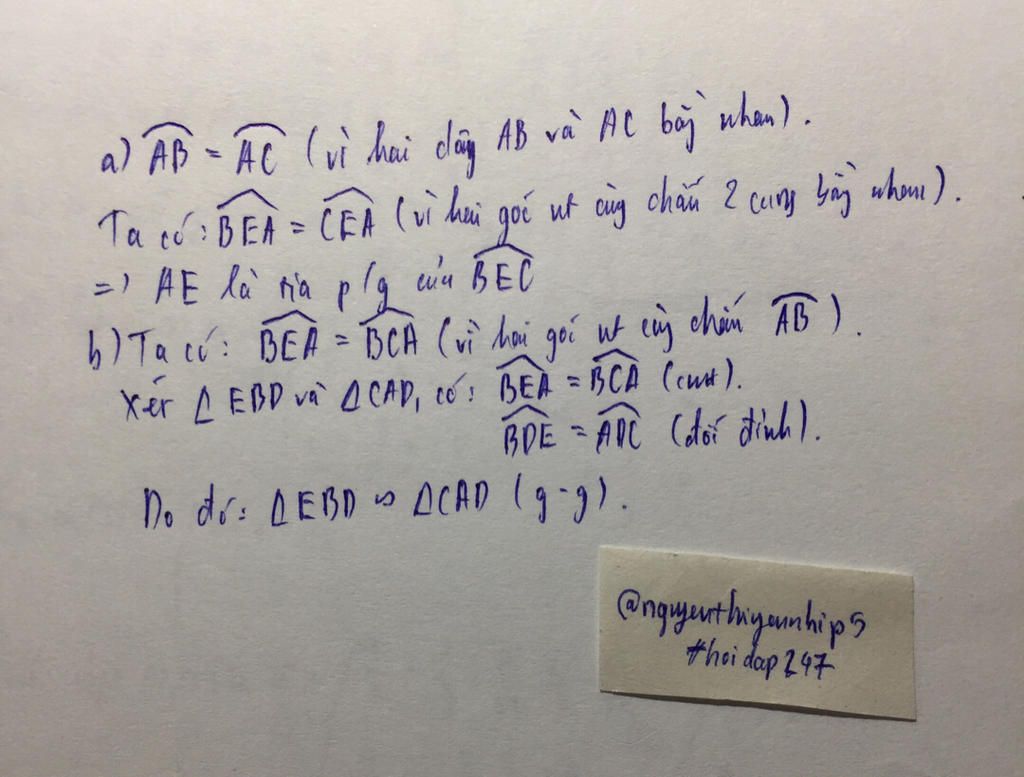 a) AB = AC (vì hai dây AB và AC bằng nhau).
Ta có: BEA = CEA (vì hai góc nt cùng chắn 2 cung bằng nhau).
=> AE là tia p/g của BEC
b) Ta có: BEA = BCA (vì hai góc nt cùng chắn AB).
Xét Δ EBD và ΔCAD, có: BEA = BCA (cmt).
BDE = ADC (đối đỉnh).
Do đó: ΔEBD ∽ ΔCAD (g-g).
@nguyenthiyennhip5
#hoidap247